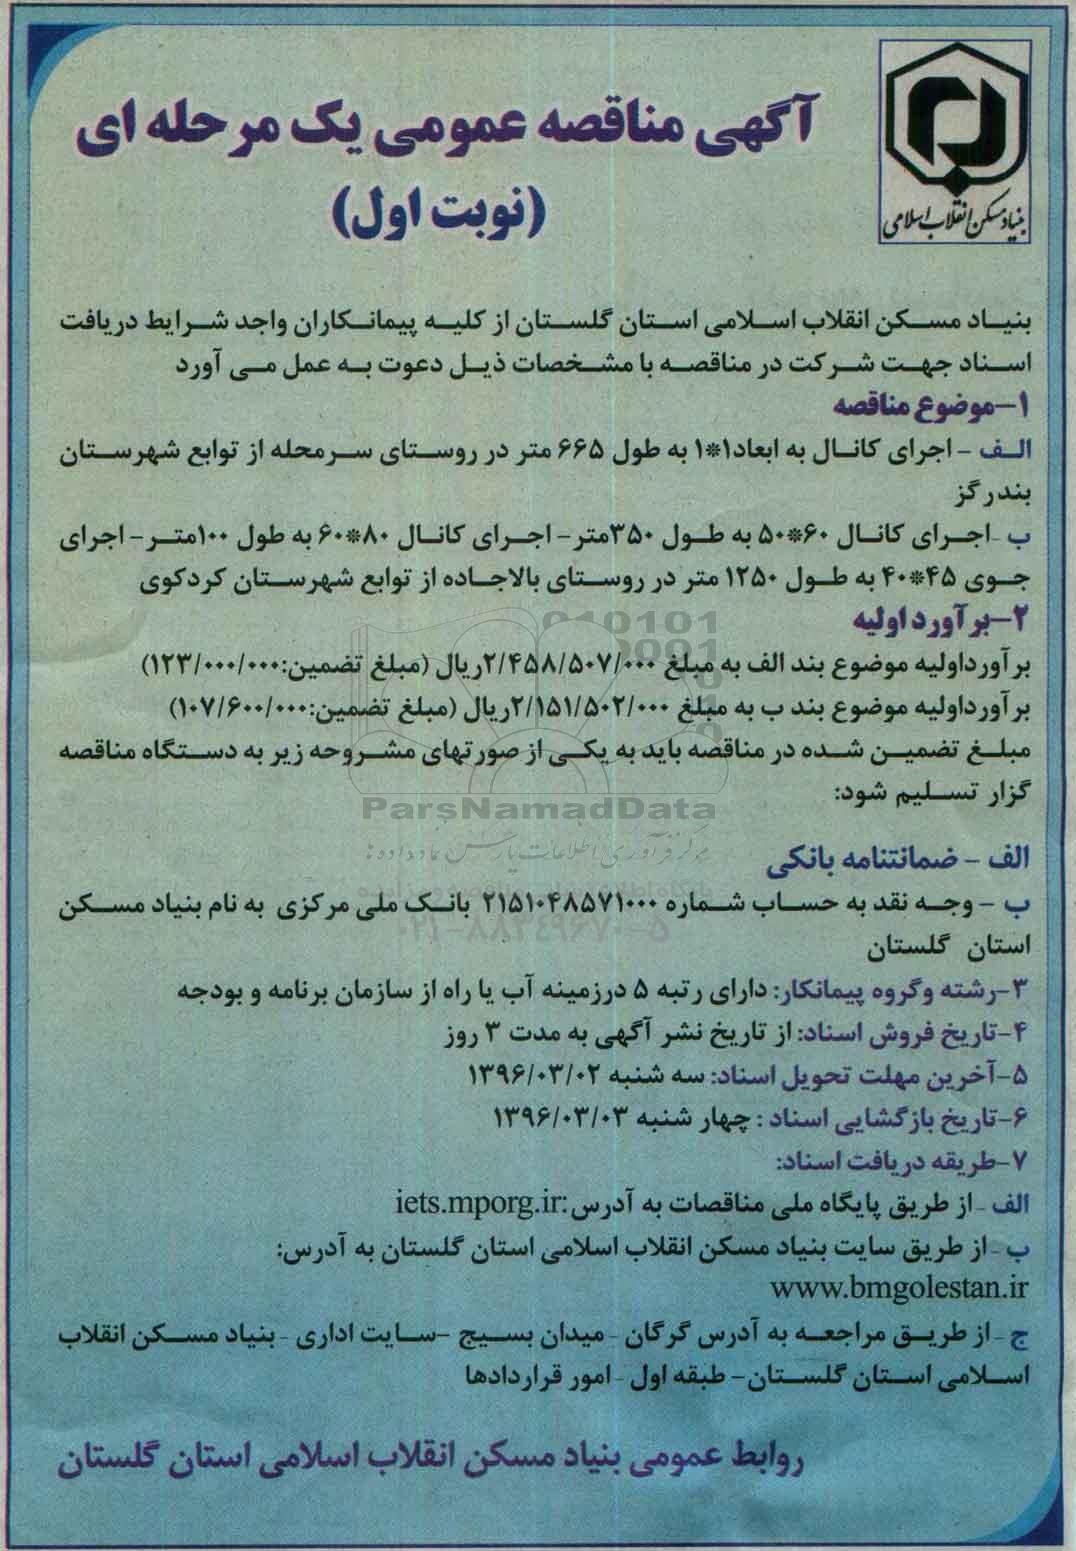 بنیاد مسکن انقلاب اسلامی
آگهی مناقصه عمومی یک مرحله ای
(نوبت اول)
بنیاد مسکن انقلاب اسلامی استان گلستان از کلیه پیمانکاران واجد شرایط دریافت
اسناد جهت شرکت در مناقصه با مشخصات ذیل دعوت به عمل می آورد
۱-موضوع مناقصه
الف - اجرای کانال به ابعاد۱*۱ به طول ۶۶۵ متر در روستای سرمحله از توابع شهرستان
بندرگز
ب -اجرای کانال ۶۰*۵۰ به طول ۳۵۰متر- اجرای کانال ۸۰*۶۰ به طول ۱۰۰متر- اجرای
جوی ۴۵*۴۰ به طول ۱۲۵۰ متر در روستای بالاجاده از توابع شهرستان کردکوی
۲-برآورد اولیه
برآورداولیه موضوع بند الف به مبلغ ۲/۴۵۸/۵۰۷/۰۰۰ریال (مبلغ تضمین:۱۲۳/۰۰۰/۰۰۰)
برآورداولیه موضوع بند ب به مبلغ ۲/۱۵۱/۵۰۲/۰۰۰ریال (مبلغ تضمین:۱۰۷/۶۰۰/۰۰۰)
مبلغ تضمین شده در مناقصه باید به یکی از صورتهای مشروحه زیر به دستگاه مناقصه
گزار تسلیم شود:
ParsNamadData
مرکز فرآوری اطلاعات پارس نماد داده ها
الف - ضمانتنامه بانکی
ب - وجه نقد به حساب شماره ۲۱۵۱۰۴۸۵۷۱۰۰۰ بانک ملی مرکزی به نام بنیاد مسکن
۰۲۱-۸۸۳۴۹۶۷۰-۵
استان گلستان
۳-رشته وگروه پیمانکار: دارای رتبه ۵ درزمینه آب یا راه از سازمان برنامه و بودجه
۴-تاریخ فروش اسناد: از تاریخ نشر آگهی به مدت ۳ روز
۵-آخرین مهلت تحویل اسناد: سه شنبه ۱۳۹۶/۰۳/۰۲
۶-تاریخ بازگشایی اسناد : چهار شنبه ۱۳۹۶/۰۳/۰۳
۷-طریقه دریافت اسناد:
الف -از طریق پایگاه ملی مناقصات به آدرس:iets.mporg.ir
ب -از طریق سایت بنیاد مسکن انقلاب اسلامی استان گلستان به آدرس:
www.bmgolestan.ir
ج -از طریق مراجعه به آدرس گرگان - میدان بسیج -سایت اداری - بنیاد مسکن انقلاب
اسلامی استان گلستان- طبقه اول - امور قراردادها
روابط عمومی بنیاد مسکن انقلاب اسلامی استان گلستان